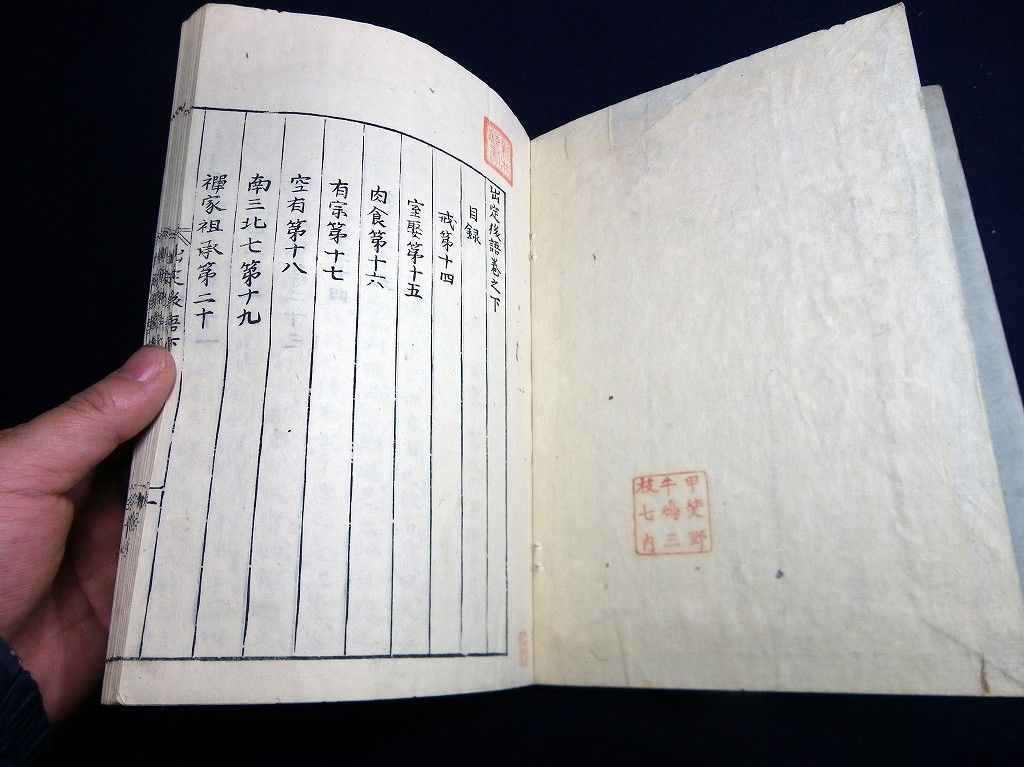 出定後語卷之下
目録
戒第十四
室娶第十五
肉食第十六
有宗第十七
空有第十八
南三北七第十九
禪家祖承第二十
出定後語下
一
甲斐野
牛鳴三
枝七内